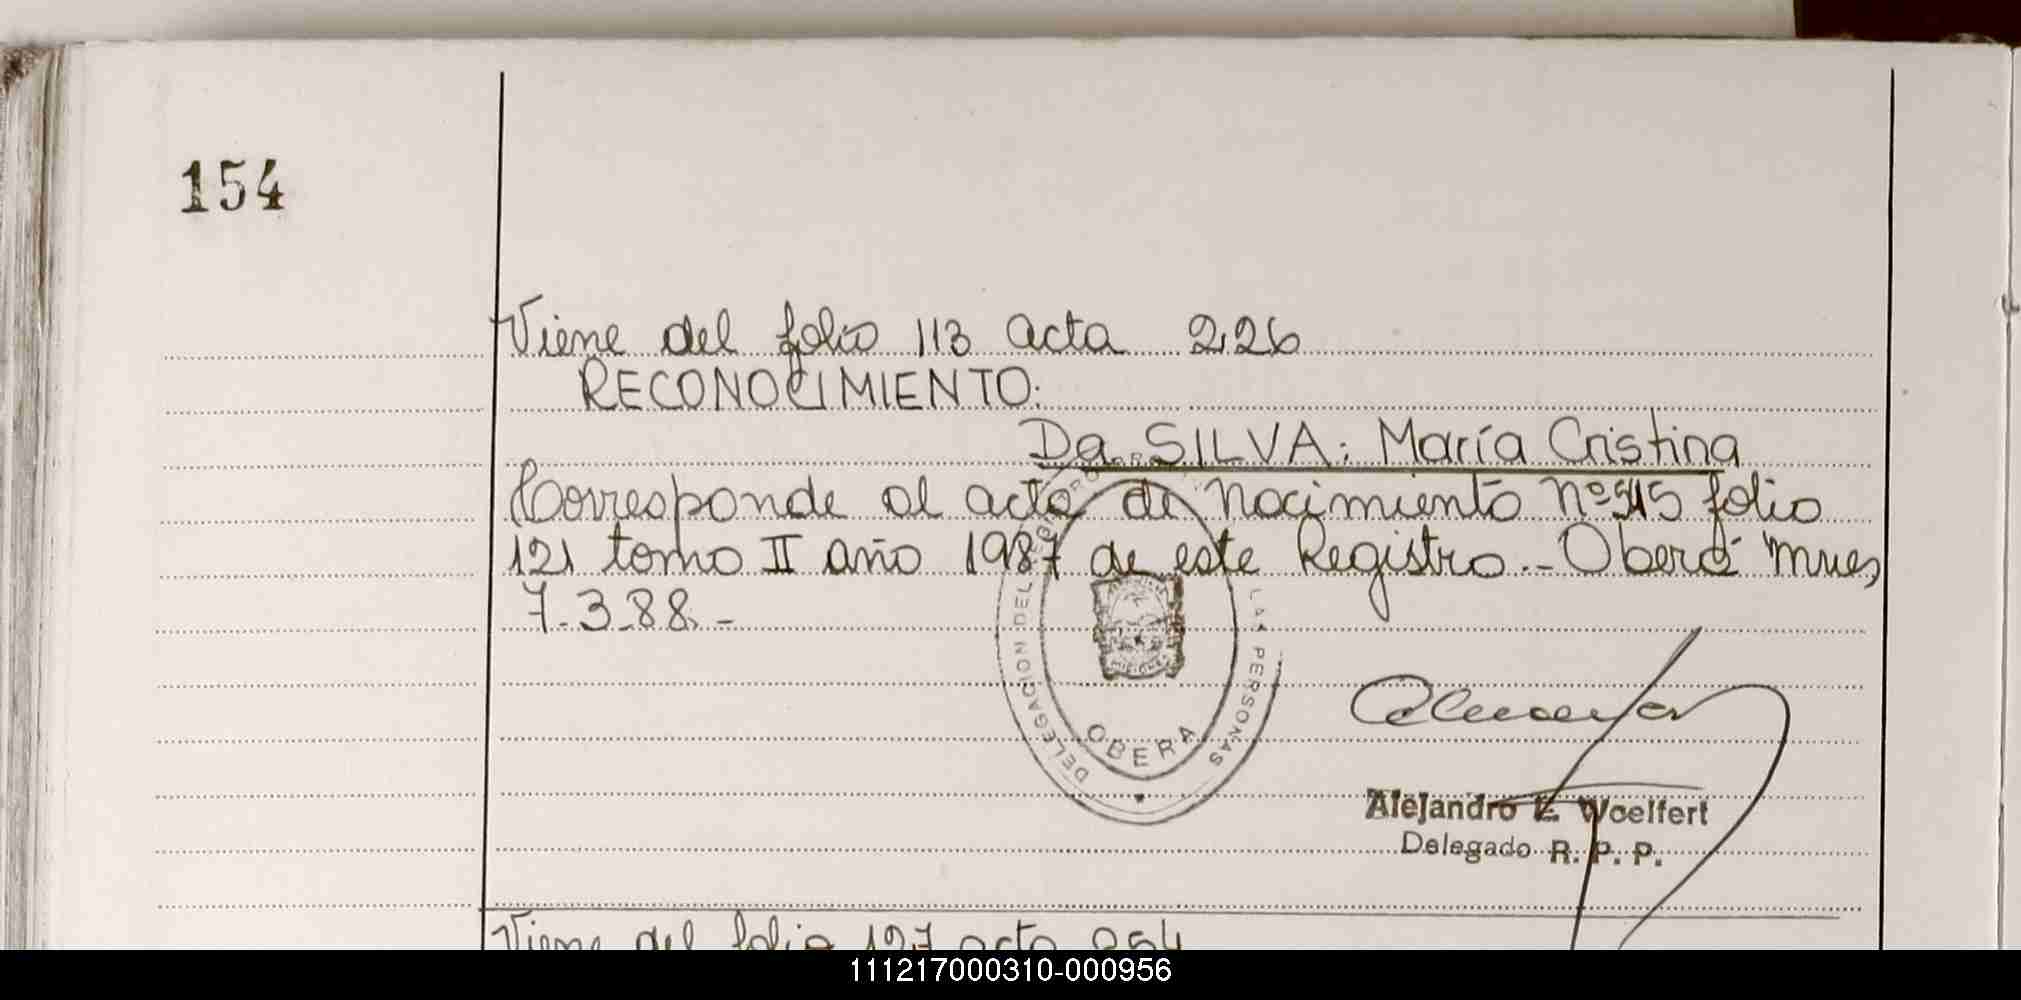 154
Viene del folio 113 acta 226
RECONOCIMIENTO.
Da SILVA: María Cristina
Corresponde al acta de nacimiento nº 545 folio
121 tomo II año 1987 de este Registro.- Oberá Mnes,
7.3.88.-
DELEGACION DEL LAS PERSONAS
OBERA
Alejandro E. Woelfert
Delegado R. P. P.
Viene del folio 127 acta 254
111217000310-000956